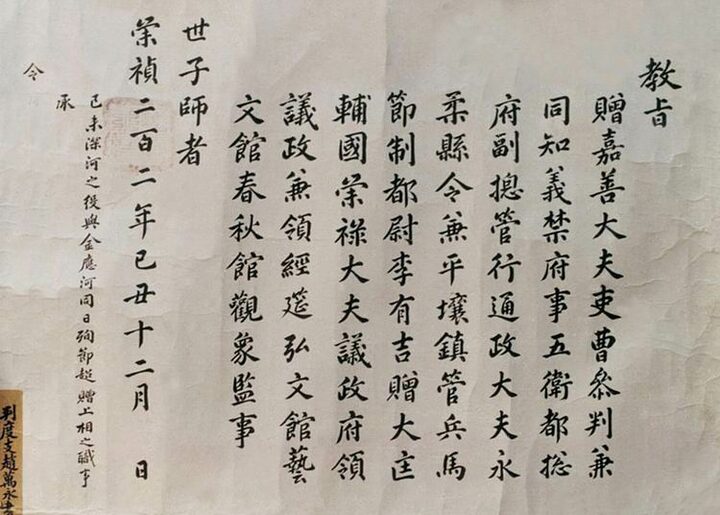 教旨
贈嘉善大夫吏曹叅判兼
同知義禁府事五衛都摠
府副摠管行通政大夫永
柔縣令兼平壤鎮管兵馬
節制都尉李有吉贈大匡
輔國崇祿大夫議政府領
議政兼領經筵弘文館藝
文館春秋館觀象監事
世子師者
崇禎二百二年己丑十二月 日
己未深河之役與金應河同日殉節超贈上相之職事
承
令
判度支趙萬永書